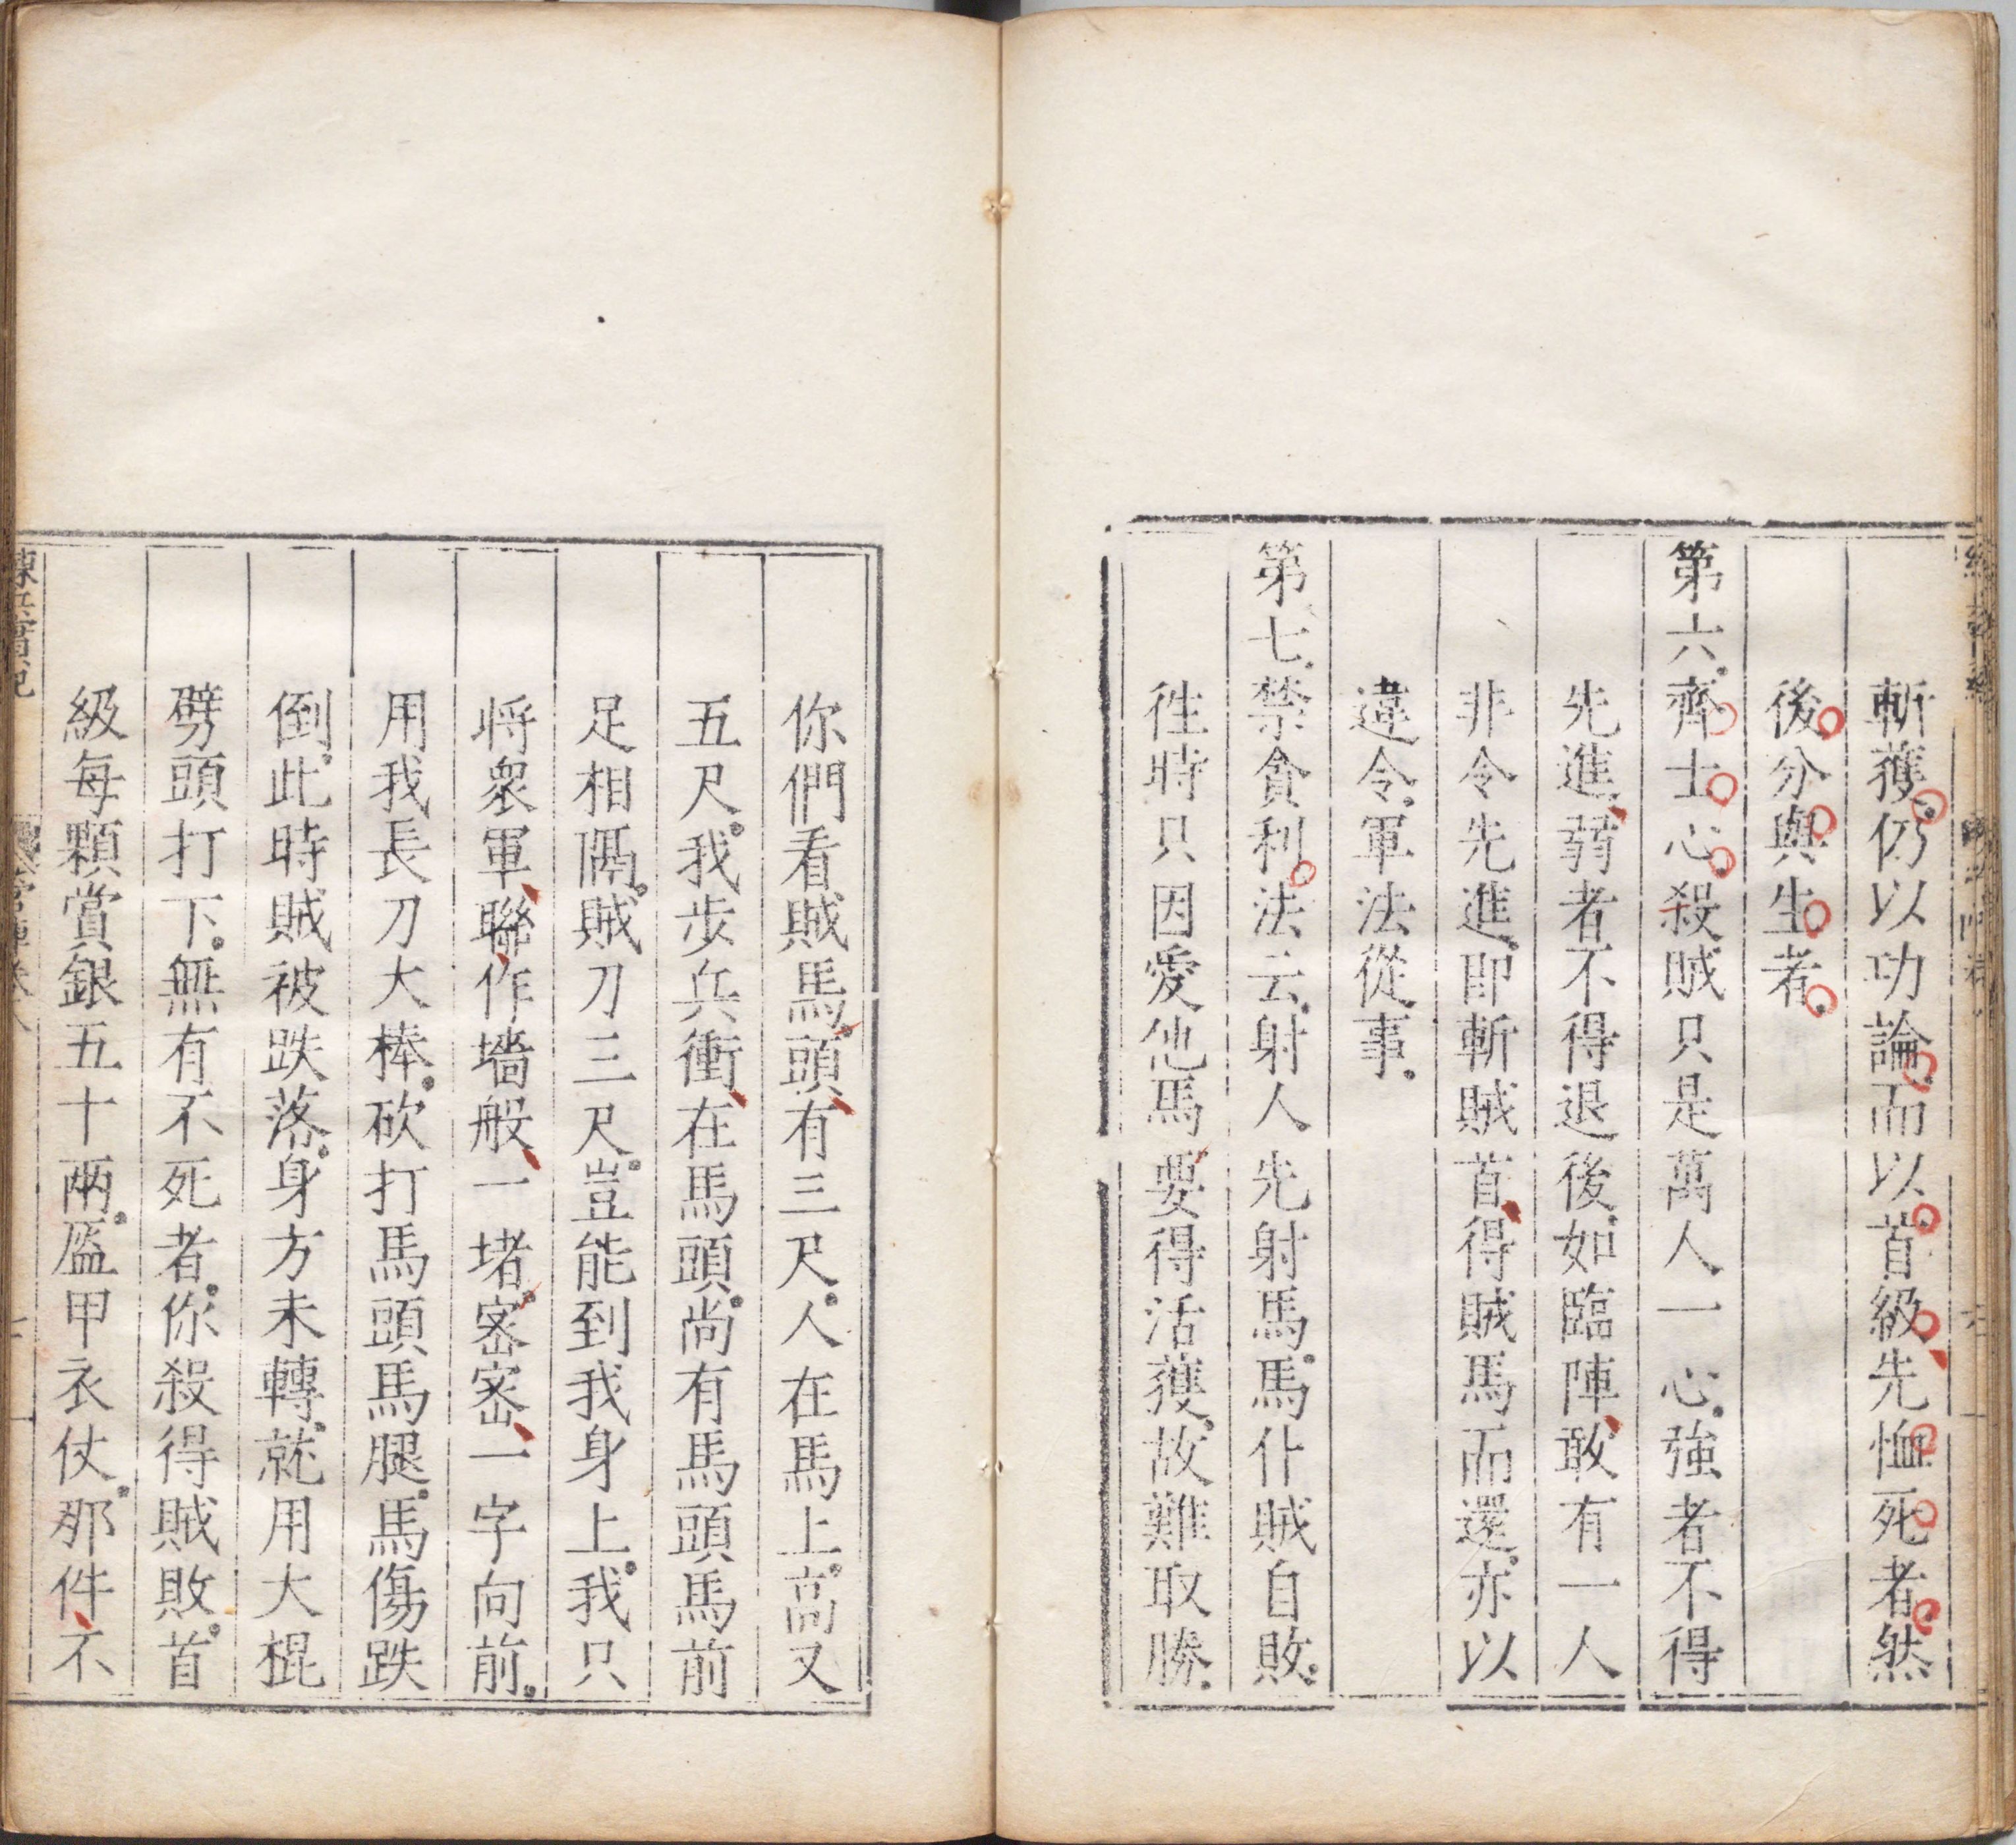 斬獲仍以功論而以首級先恤死者然
後分與生者
第六齊士心殺賊只是萬人一心強者不得
先進弱者不得退後如臨陣敢有一人
非令先進即斬賊首得賊馬而還亦以
違令軍法從事
第七禁貪利法云射人先射馬馬仆賊自敗
徃時只因愛他馬要得活獲故難取勝
你們看賊馬頭有三尺人在馬上高又
五尺我步兵衝在馬頭尚有馬頭馬前
足相隔賊刀三尺豈能到我身上我只
將衆軍聯作墻般一堵密密一字向前
用我長刀大棒砍打馬頭馬腿馬傷跌
倒此時賊被跌落身方未轉就用大棍
劈頭打下無有不死者你殺得賊敗首
級每顆賞銀五十兩盔甲衣仗那件不
練兵實紀